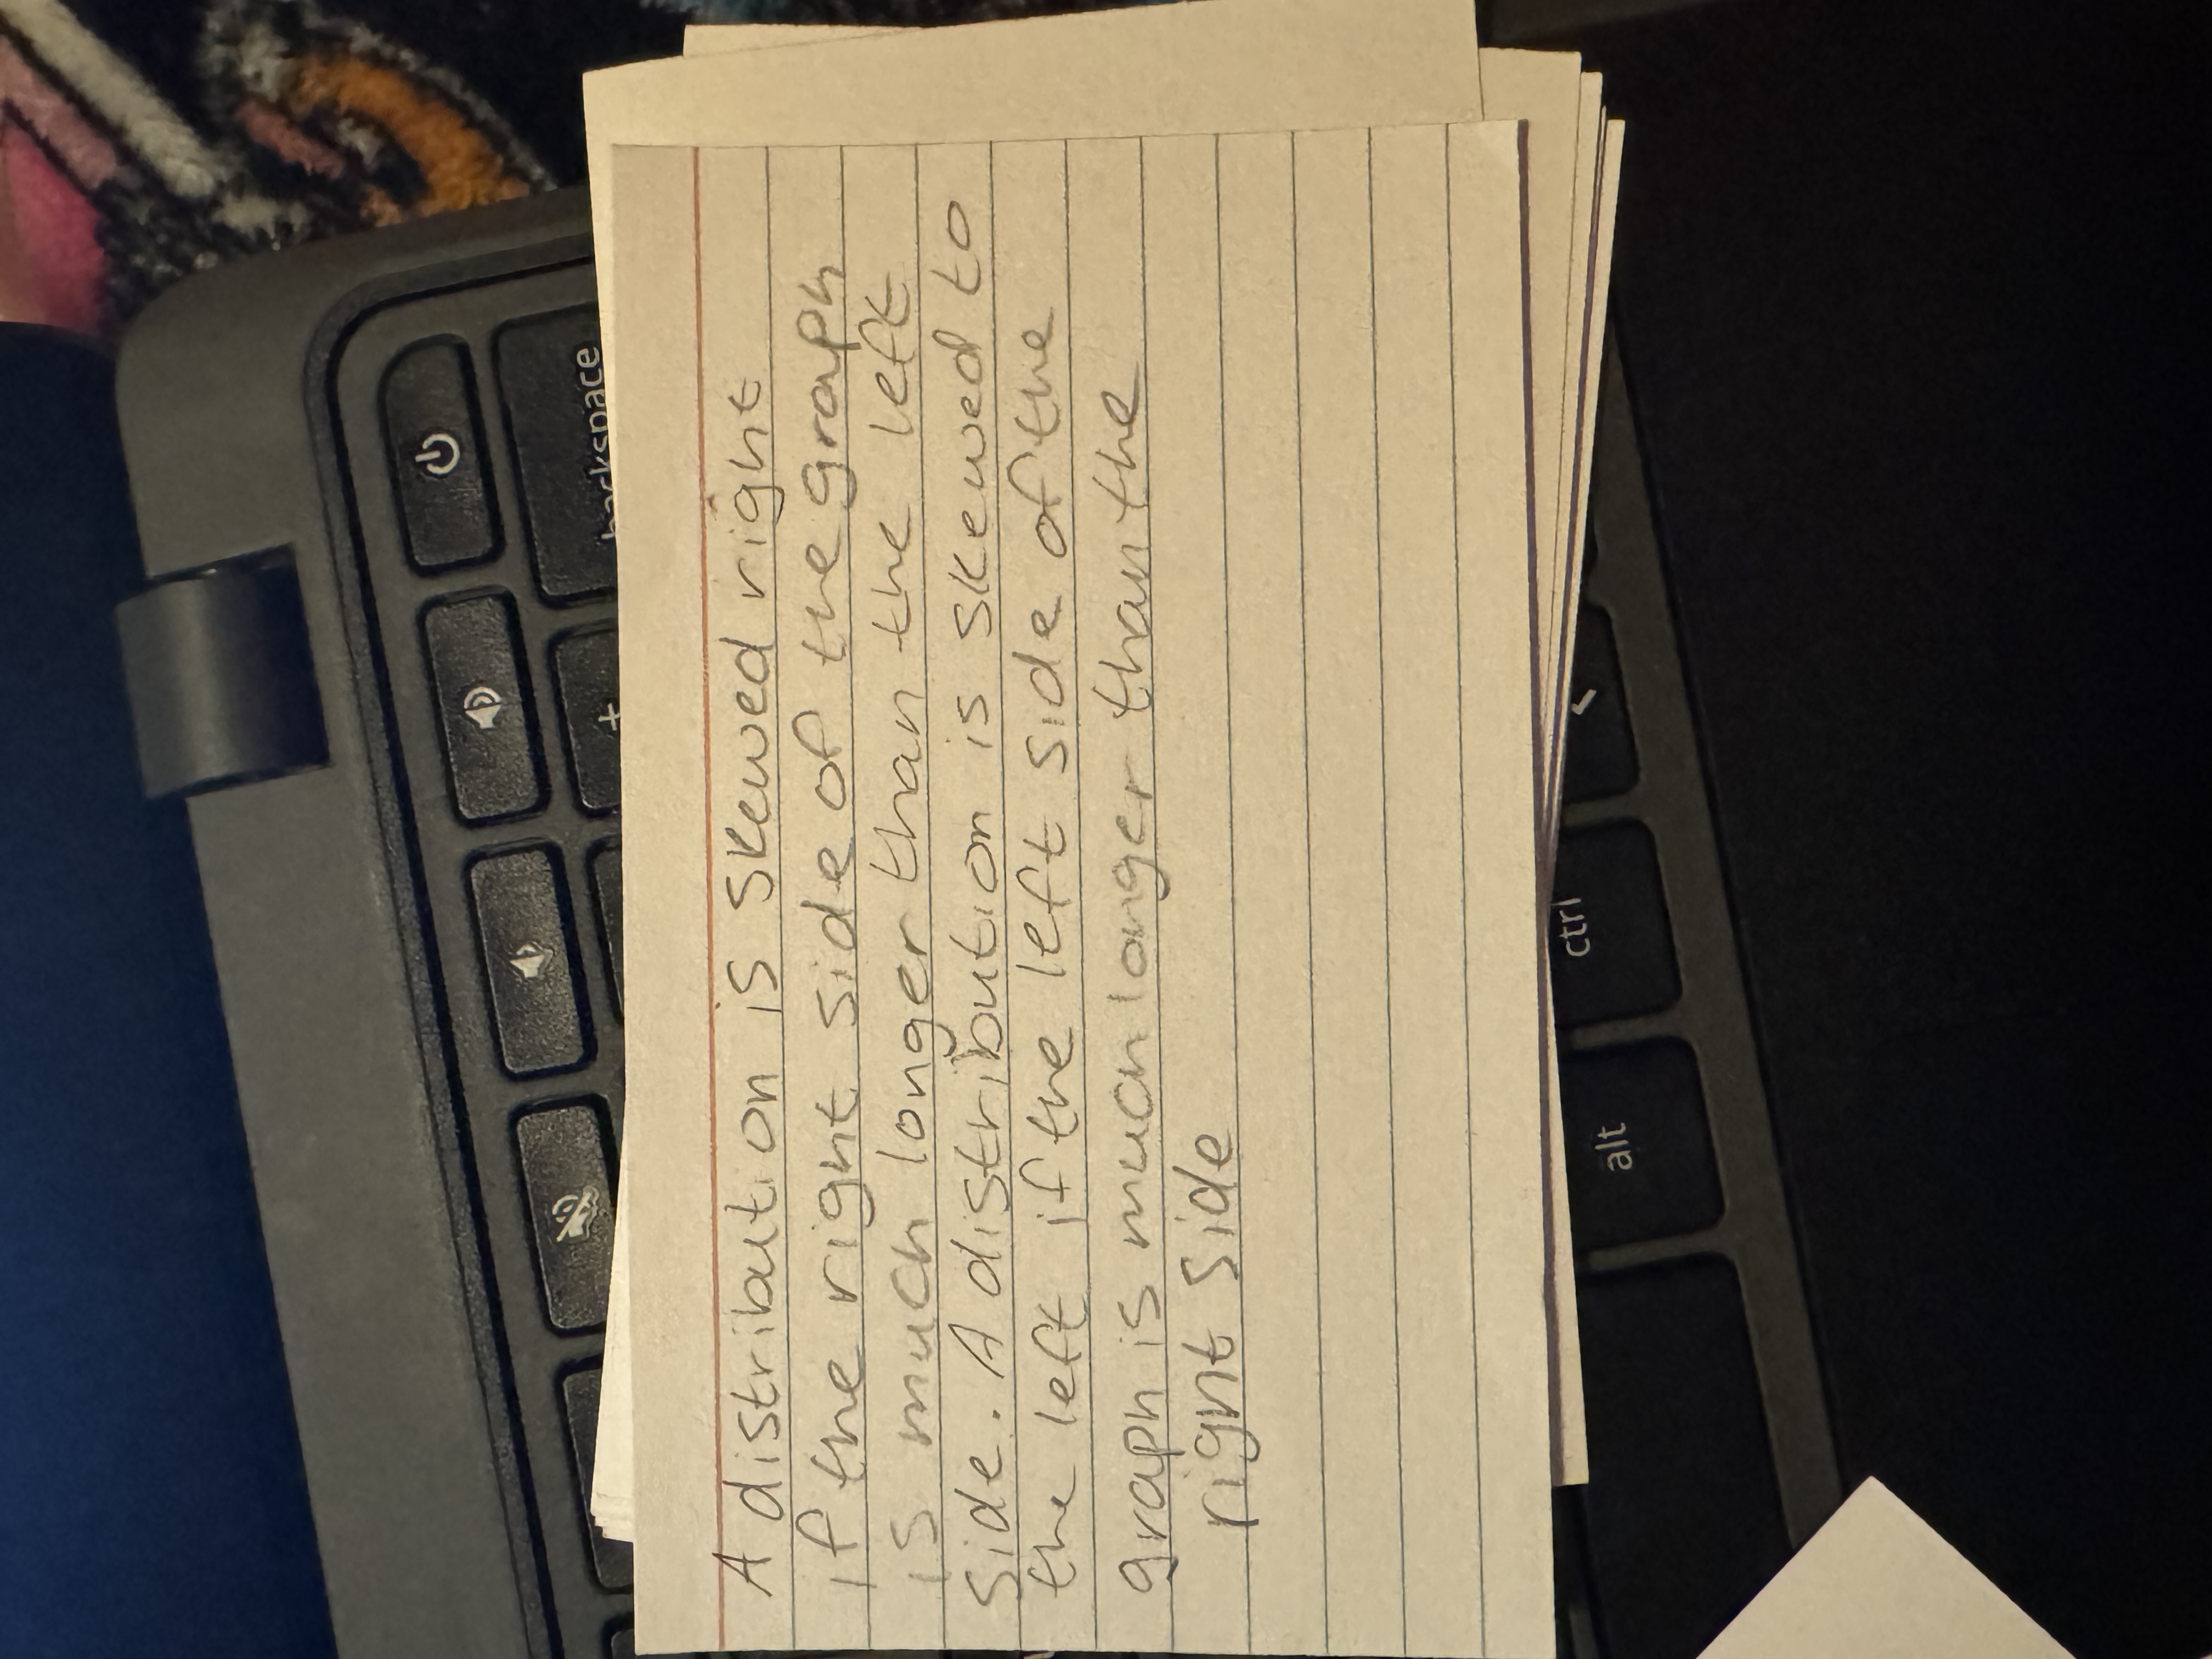 A distribution is skewed right
if the right side of the graph
is much longer than the left
side. A distribution is skewed to
the left if the left side of the
graph is much longer than the
right side
backspace
+
<
ctrl
alt